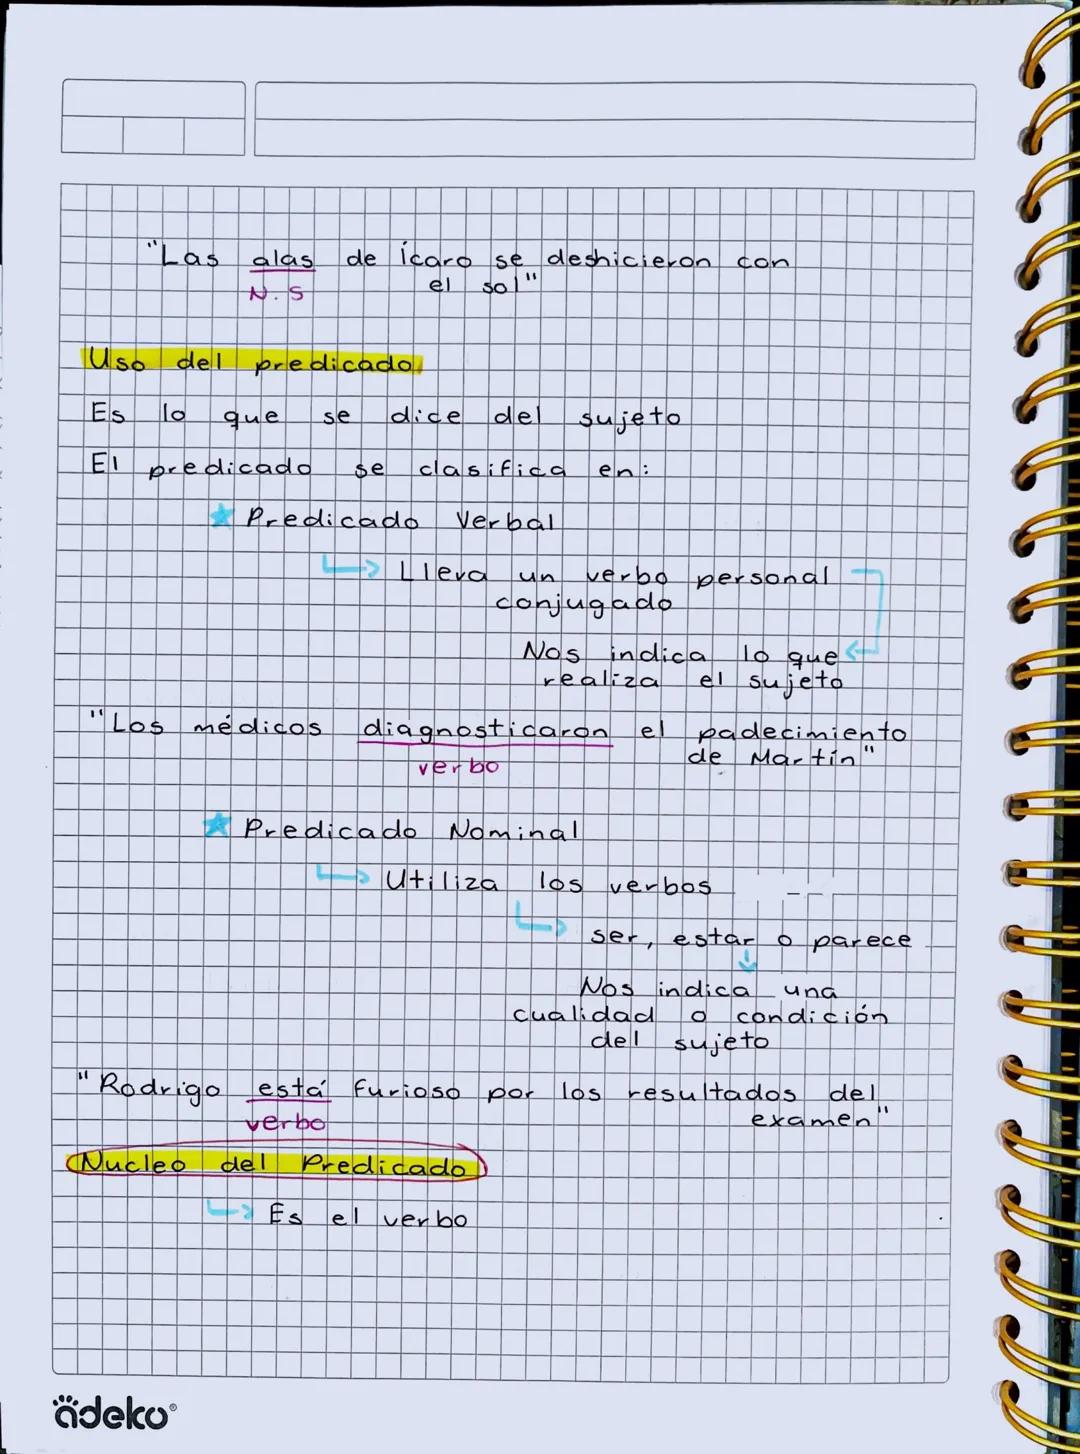 "Las alas de Ícaro se deshicieron con
N.S el sol"
Uso del predicado
Es lo que se dice del sujeto
El predicado se clasifica en:
Predicado Verbal
Lleva un verbo personal
conjugado
Nos indica lo que
realiza el sujeto
"Los médicos diagnosticaron el padecimiento
verbo de Martín"
Predicado Nominal
Utiliza los verbos
ser, estar o parece
Nos indica una
cualidad o condición
del sujeto
"Rodrigo está furioso por los resultados del
verbo examen"
Nucleo del Predicado
Es el verbo
adeko®